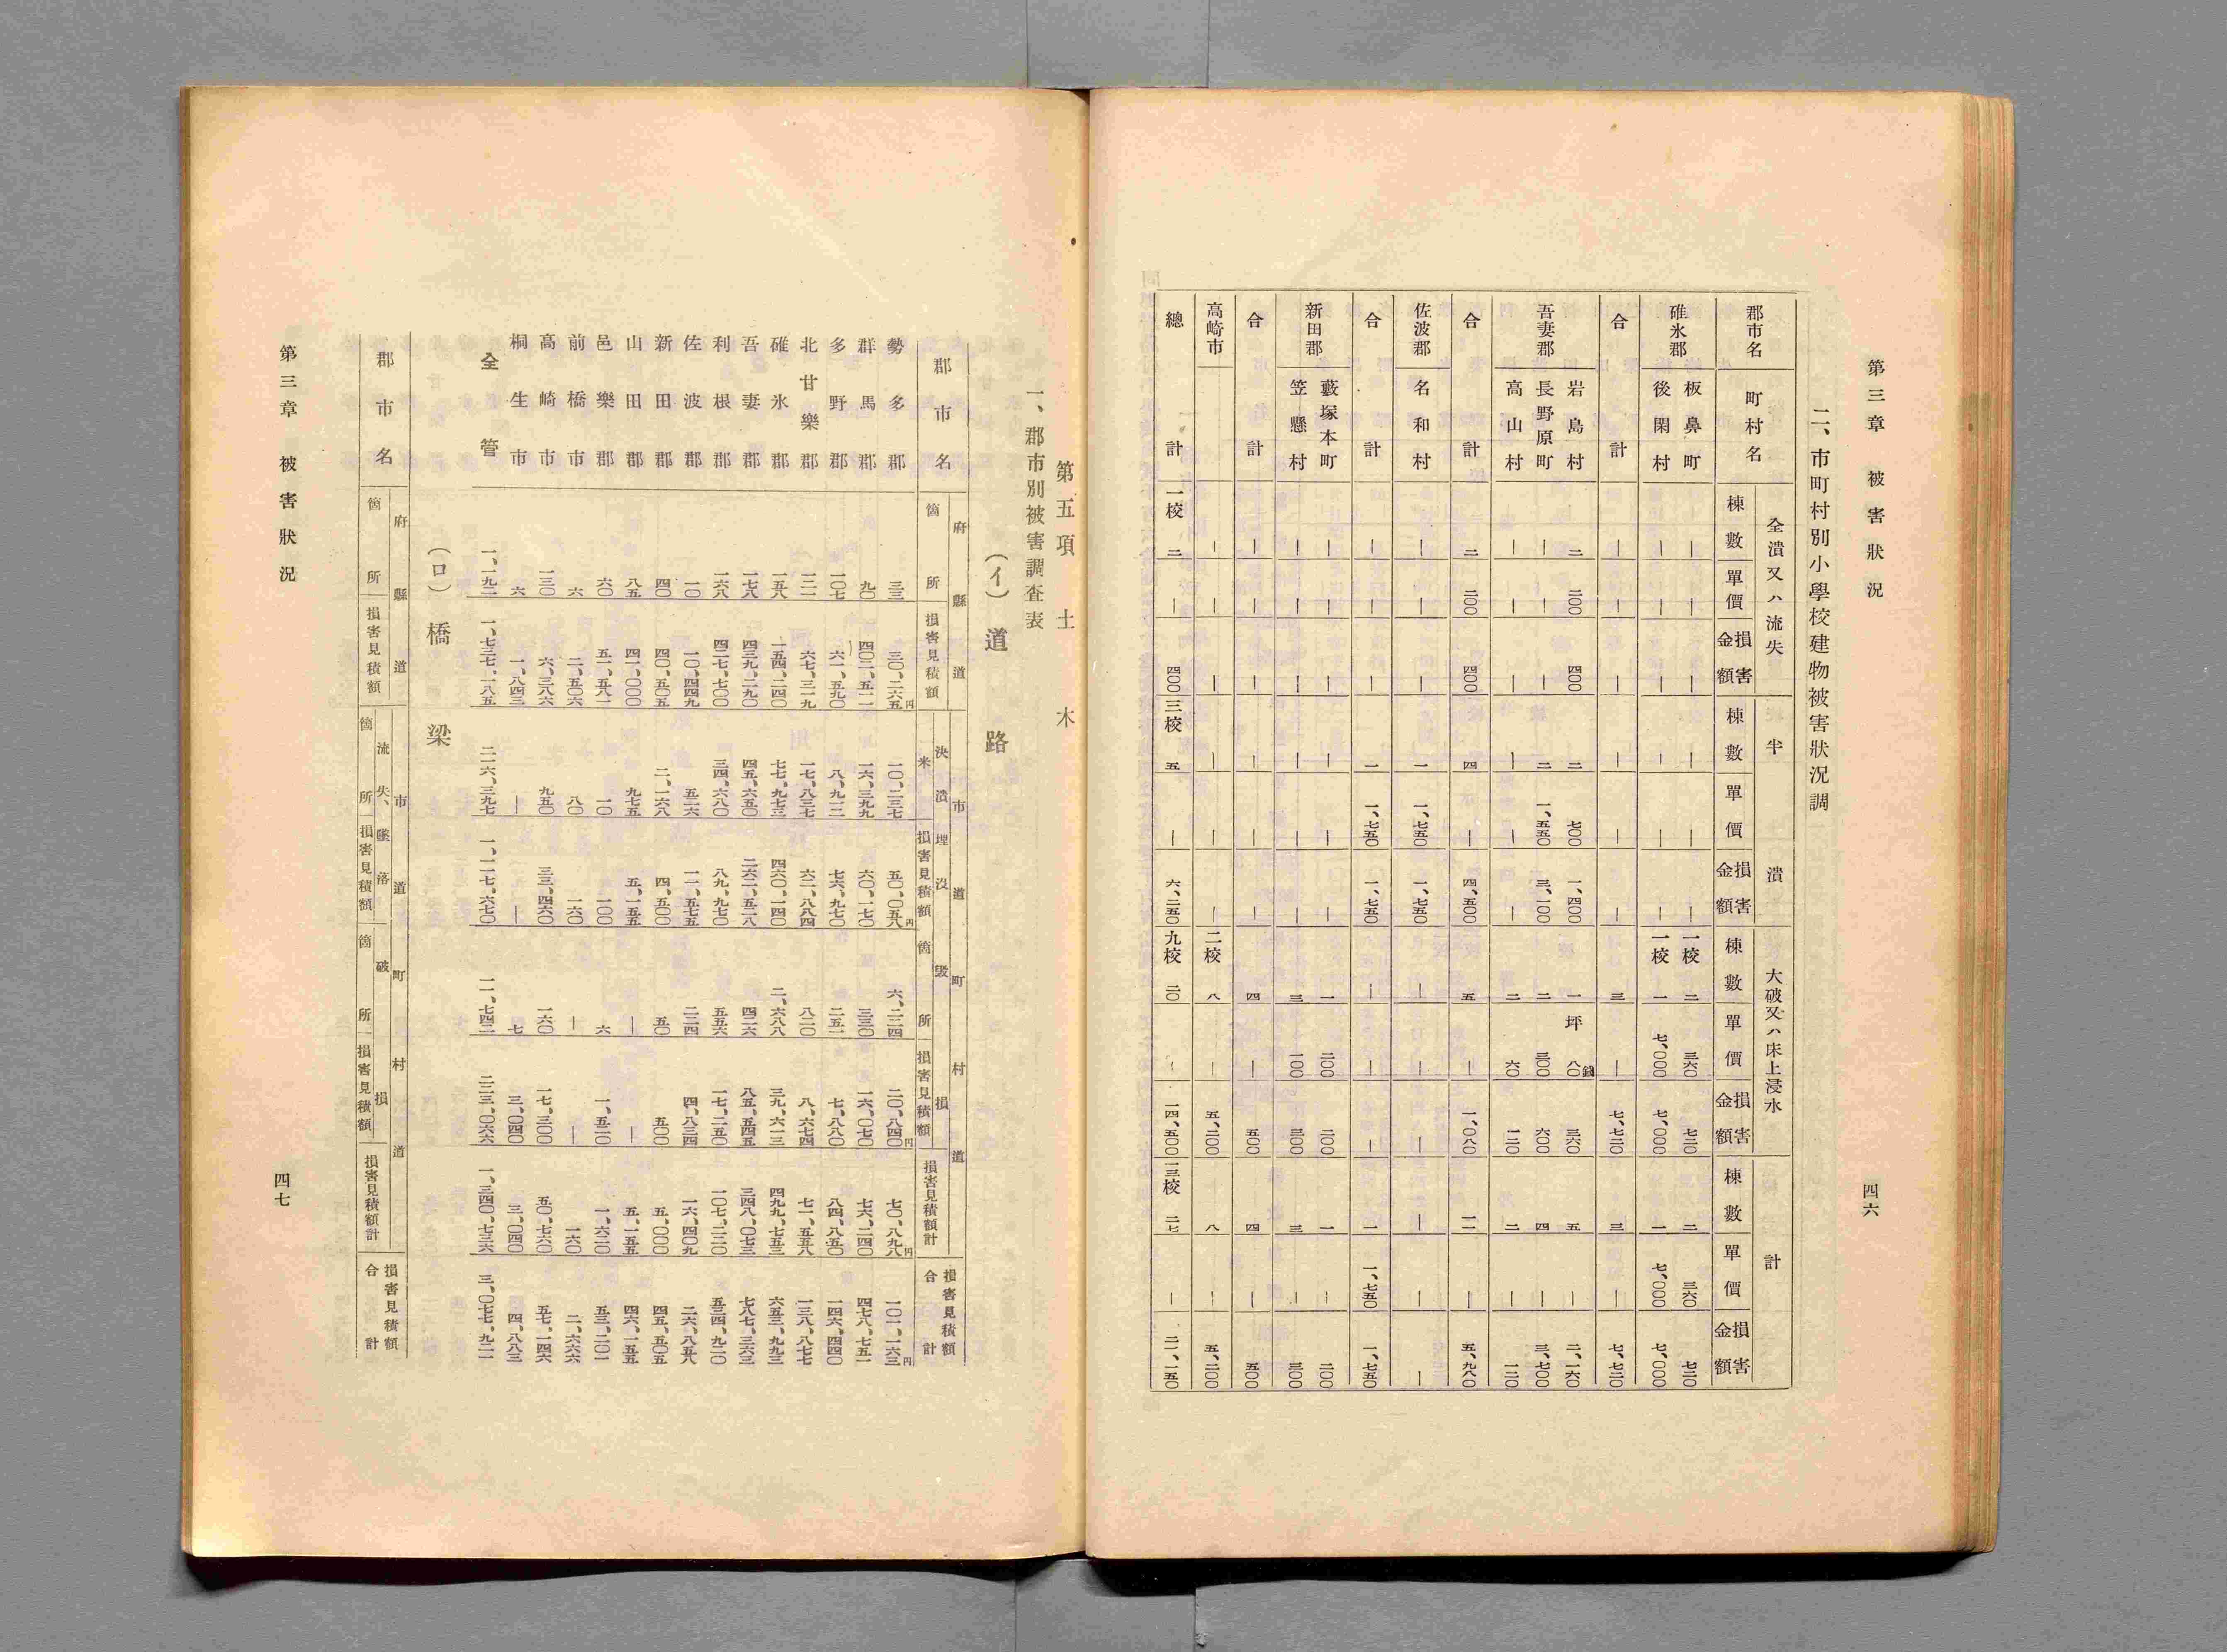 第三章 被害狀況
四六
二、市町村別小學校建物被害狀況調
郡市名 町村名 全潰又ハ流失 半潰 大破又ハ床上浸水 計
棟數 單價 損害金額 棟數 單價 損害金額 棟數 單價 損害金額 棟數 單價 損害金額
碓氷郡 板鼻町 ― ― ― ― ― ― 一校 二 三六〇 七二〇 二 三六〇 七二〇
後閑村 ― ― ― ― ― ― 一校 一 七、〇〇〇 七、〇〇〇 一 七、〇〇〇 七、〇〇〇
合計 ― ― ― ― ― ― 三 ― 七、七二〇 三 ― 七、七二〇
吾妻郡 岩島村 二 二〇〇 四〇〇 二 七〇〇 一、四〇〇 一 坪 八〇錢 三六〇 五 ― 二、一六〇
長野原町 ― ― ― 二 一、五五〇 三、一〇〇 二 三〇〇 六〇〇 四 ― 三、七〇〇
高山村 ― ― ― ― ― ― 二 六〇 一二〇 二 ― 一二〇
合計 二 二〇〇 四〇〇 四 ― 四、五〇〇 五 ― 一、〇八〇 一一 ― 五、九八〇
佐波郡 名和村 ― ― ― 一 一、七五〇 一、七五〇 ― ― ― ― ― ―
合計 ― ― ― 一 一、七五〇 一、七五〇 ― ― ― 一 一、七五〇 一、七五〇
新田郡 藪塚本町 ― ― ― ― ― ― 一 二〇〇 二〇〇 一 ― 二〇〇
笠懸村 ― ― ― ― ― ― 三 一〇〇 三〇〇 三 ― 三〇〇
合計 ― ― ― ― ― ― 四 ― 五〇〇 四 ― 五〇〇
高崎市 ― ― ― ― ― ― 二校 八 ― 五、二〇〇 八 ― 五、二〇〇
總計 一校 二 ― 四〇〇 三校 五 ― 六、二五〇 九校 二〇 ― 一四、五〇〇 一三校 二七 ― 二一、一五〇
第五項 土木
一、郡市別被害調査表
(イ) 道路
郡市名 府縣道 市道 町村道 損害見積額合計
箇所 損害見積額 決潰埋沒 米 損害見積額 毀損 箇所 損害見積額 損害見積額計
勢多郡 三三 三〇、二六五円 一〇、二三七 五〇、〇五八円 六、二二四 二〇、八四〇円 七〇、八九八円 一〇一、一六三円
群馬郡 九〇 四〇二、五一一 一六、三九九 六〇、一七〇 三三〇 一六、〇七〇 七六、二四〇 四七八、七五一
多野郡 一〇七 六一、五九〇 八、九一二 七六、九七〇 二五一 七、八八〇 八四、八五〇 一四六、四四〇
北甘樂郡 一二一 六七、三一九 一七、八三七 六二、八八四 八二〇 八、六七四 七一、五五八 一三八、八七七
碓氷郡 一五八 一五四、二四〇 七七、九七三 四六〇、一四〇 二、六八八 三九、六一三 四九九、七五三 六五三、九九三
吾妻郡 一七八 四三九、二九〇 四五、六五〇 二六二、五二八 四二六 八五、五四五 三四八、〇七三 七八七、三六三
利根郡 一六八 四二七、七〇〇 三四、六八〇 八九、九七〇 五五六 一七、二五〇 一〇七、二二〇 五三四、九二〇
佐波郡 一〇 一〇、四四九 五二六 一一、五七五 二二四 四、八三四 一六、四〇九 二六、八五八
新田郡 四〇 四〇、五〇五 二、一六八 四、五〇〇 五〇 五〇〇 五、〇〇〇 四五、五〇五
山田郡 八五 四一、〇〇〇 九七五 五、一五五 ― ― 五、一五五 四六、一五五
邑樂郡 六〇 五一、五八一 一〇 一〇〇 六 一、五二〇 一、六二〇 五三、二〇一
前橋市 六 二、五〇六 八〇 一六〇 ― ― 一六〇 二、六六六
高崎市 一三〇 六、三八六 九五〇 三三、四六〇 一六〇 一七、三〇〇 五〇、七六〇 五七、一四六
桐生市 六 一、八四三 ― ― 七 三、〇四〇 三、〇四〇 四、八八三
全管 一、一九二 一、七三七、一八五 二一六、三九七 一、一一七、六七〇 一一、七四二 二二三、〇六六 一、三四〇、七三六 三、〇七七、九二一
(ロ) 橋梁
郡市名 府縣道 市道 町村道 損害見積額合計
箇所 損害見積額 流失、墜落 箇所 損害見積額 破損 箇所 損害見積額 損害見積額計
第三章 被害狀況
四七